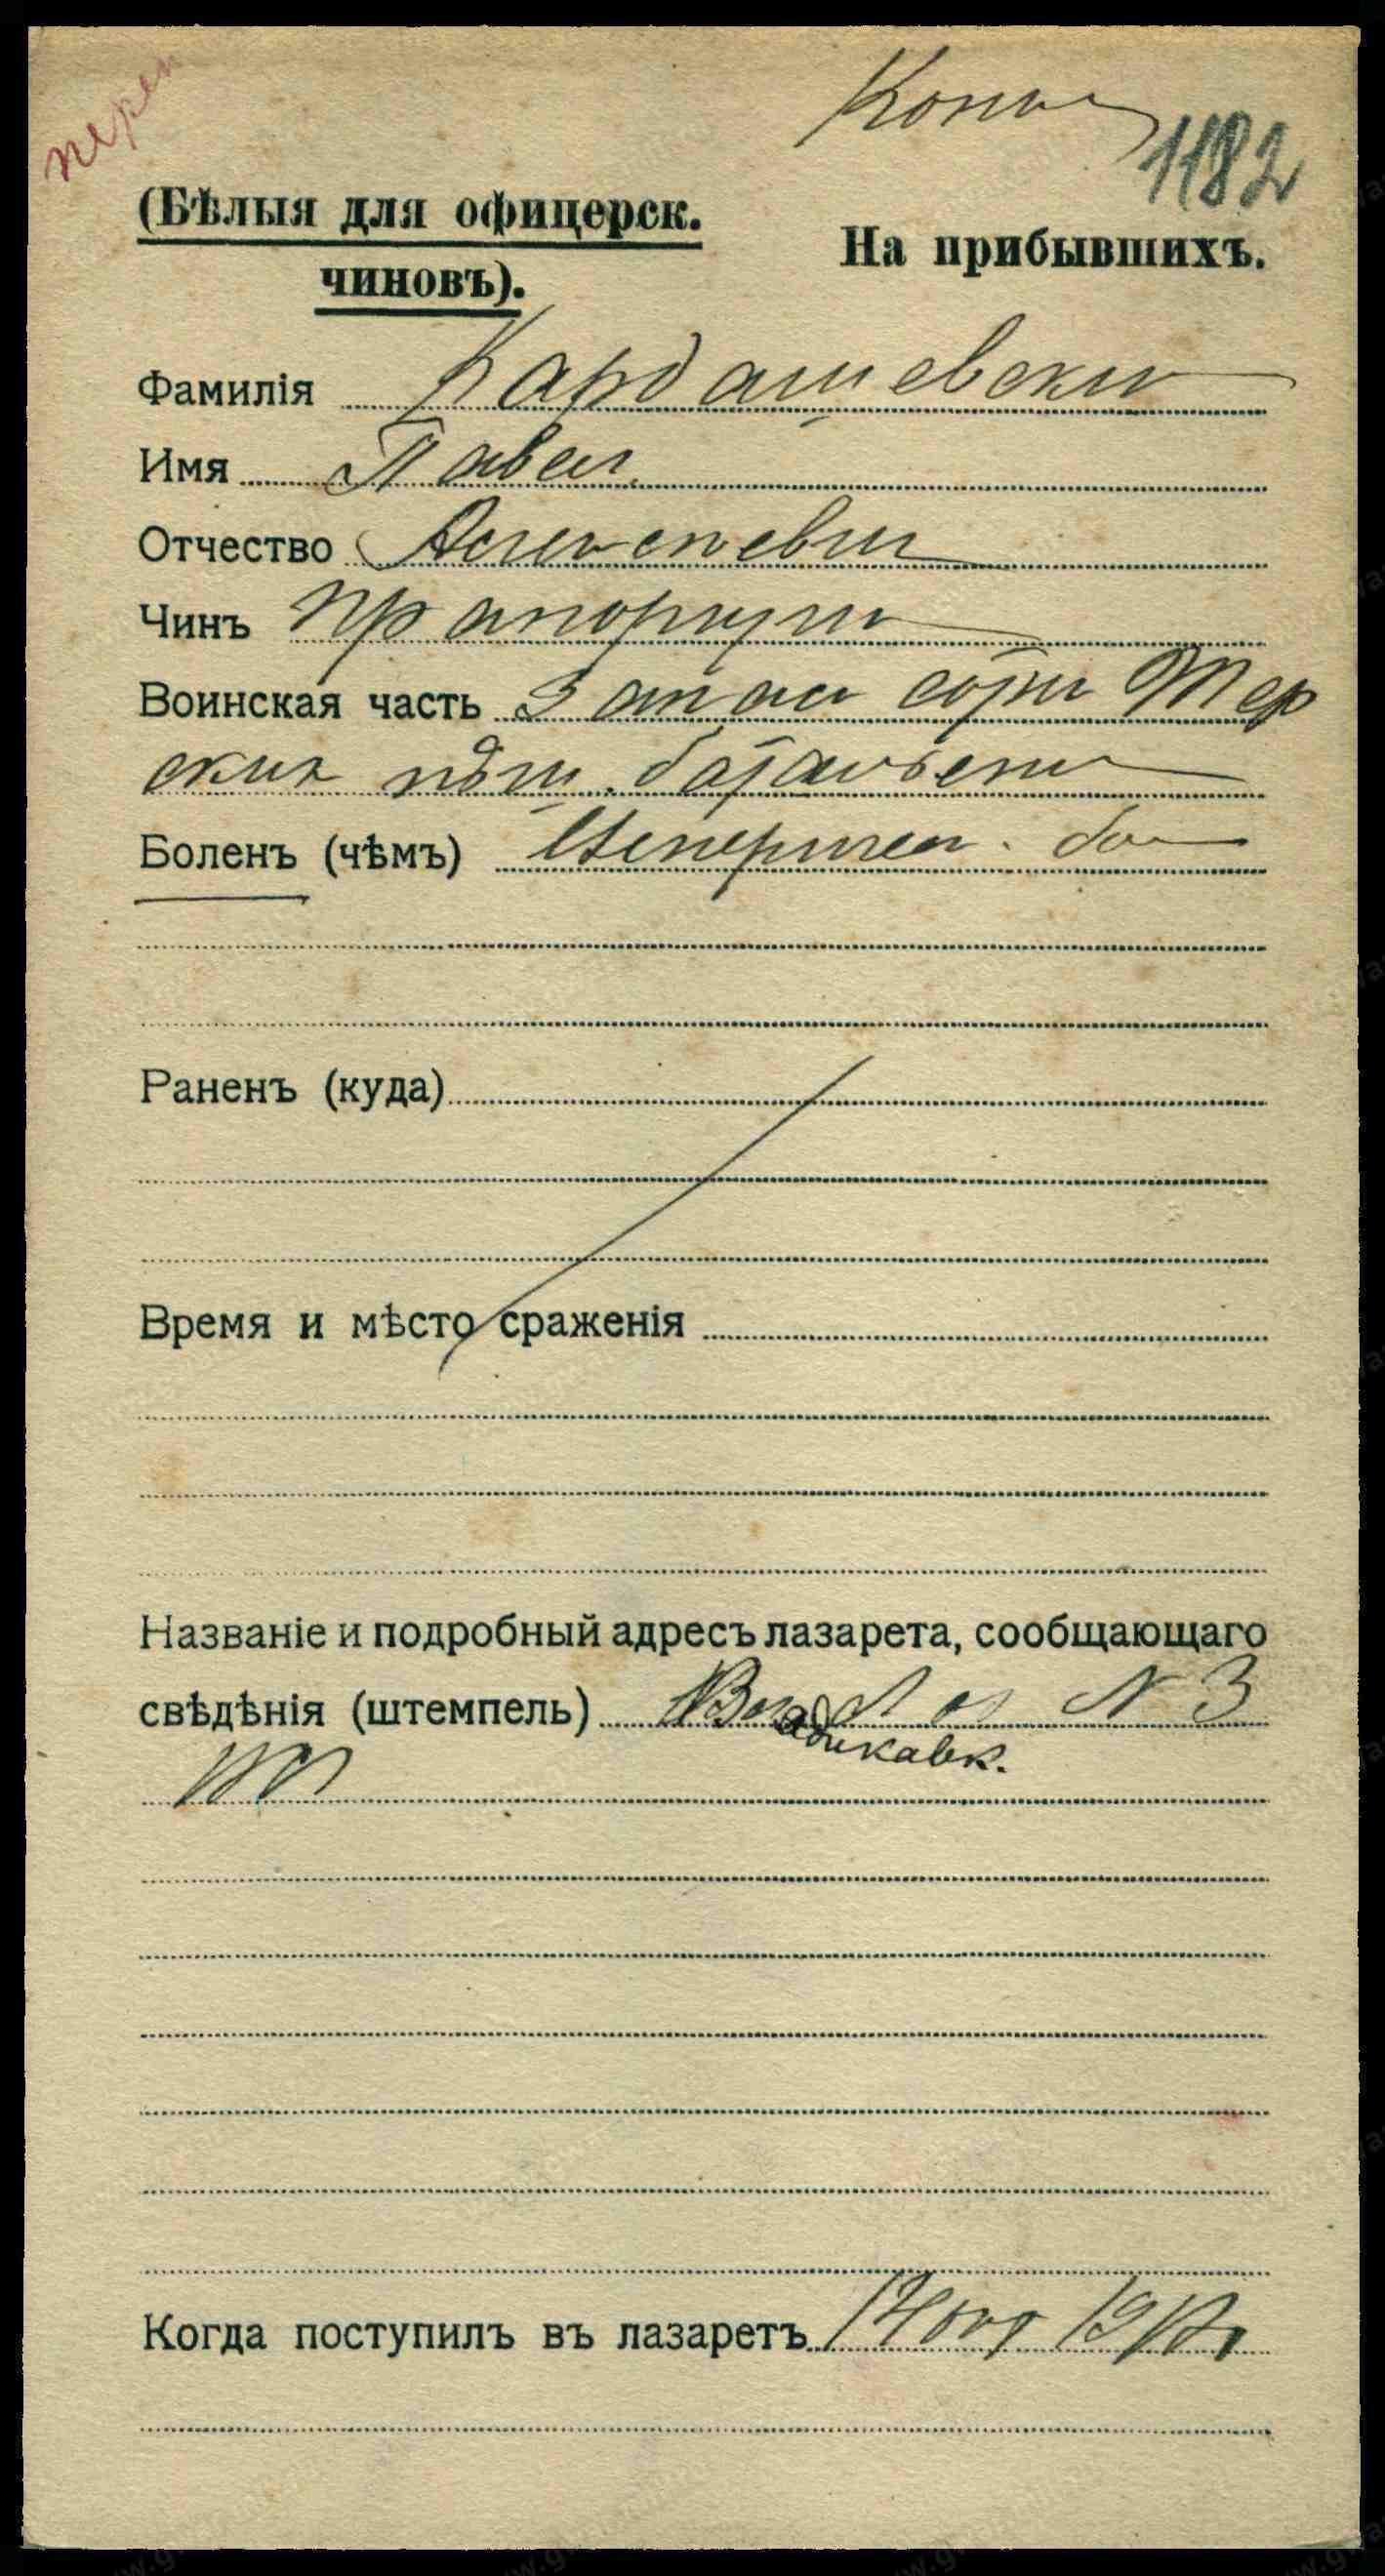 перен
Копия
1182
(Бѣлыя для офицерск.
чиновъ).
На прибывшихъ.
Фамилія Кардашевски
Имя Павел
Отчество Алексеевич
Чинъ прапорщик
Воинская часть Запасн сотн Тер
ских пѣш. батальон
Боленъ (чѣмъ) Венерическ. бо
Раненъ (куда)
Время и мѣсто сраженія
Названіе и подробный адресъ лазарета, сообщающаго
свѣдѣнія (штемпель) Владикавк. N 3
Когда поступилъ въ лазаретъ 1 Нояб 1917